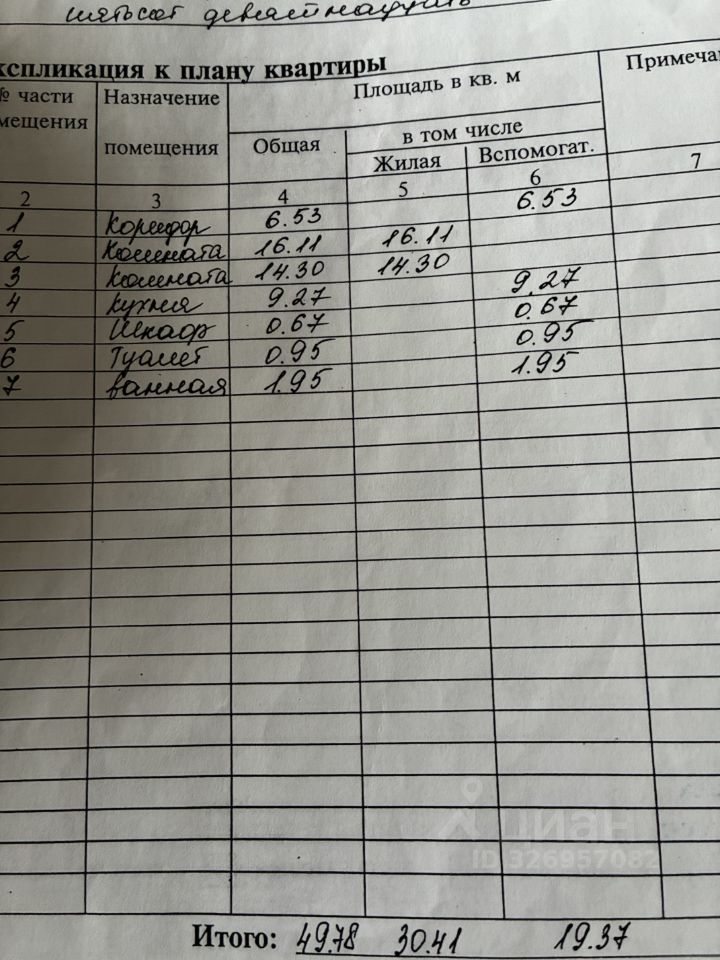 шетьсот девятнадцать
кспликация к плану квартиры
№ части мещения Назначение помещения Площадь в кв. м Примеча
Общая в том числе
Жилая Вспомогат.
2 3 4 5 6 7
1 Коридор 6.53 6.53
2 Комната 16.11 16.11
3 Комната 14.30 14.30
4 кухня 9.27 9.27
5 Шкаф 0.67 0.67
6 Туалет 0.95 0.95
7 ванная 1.95 1.95
циан
ID 326957082
Итого: 49.78 30.41 19.37